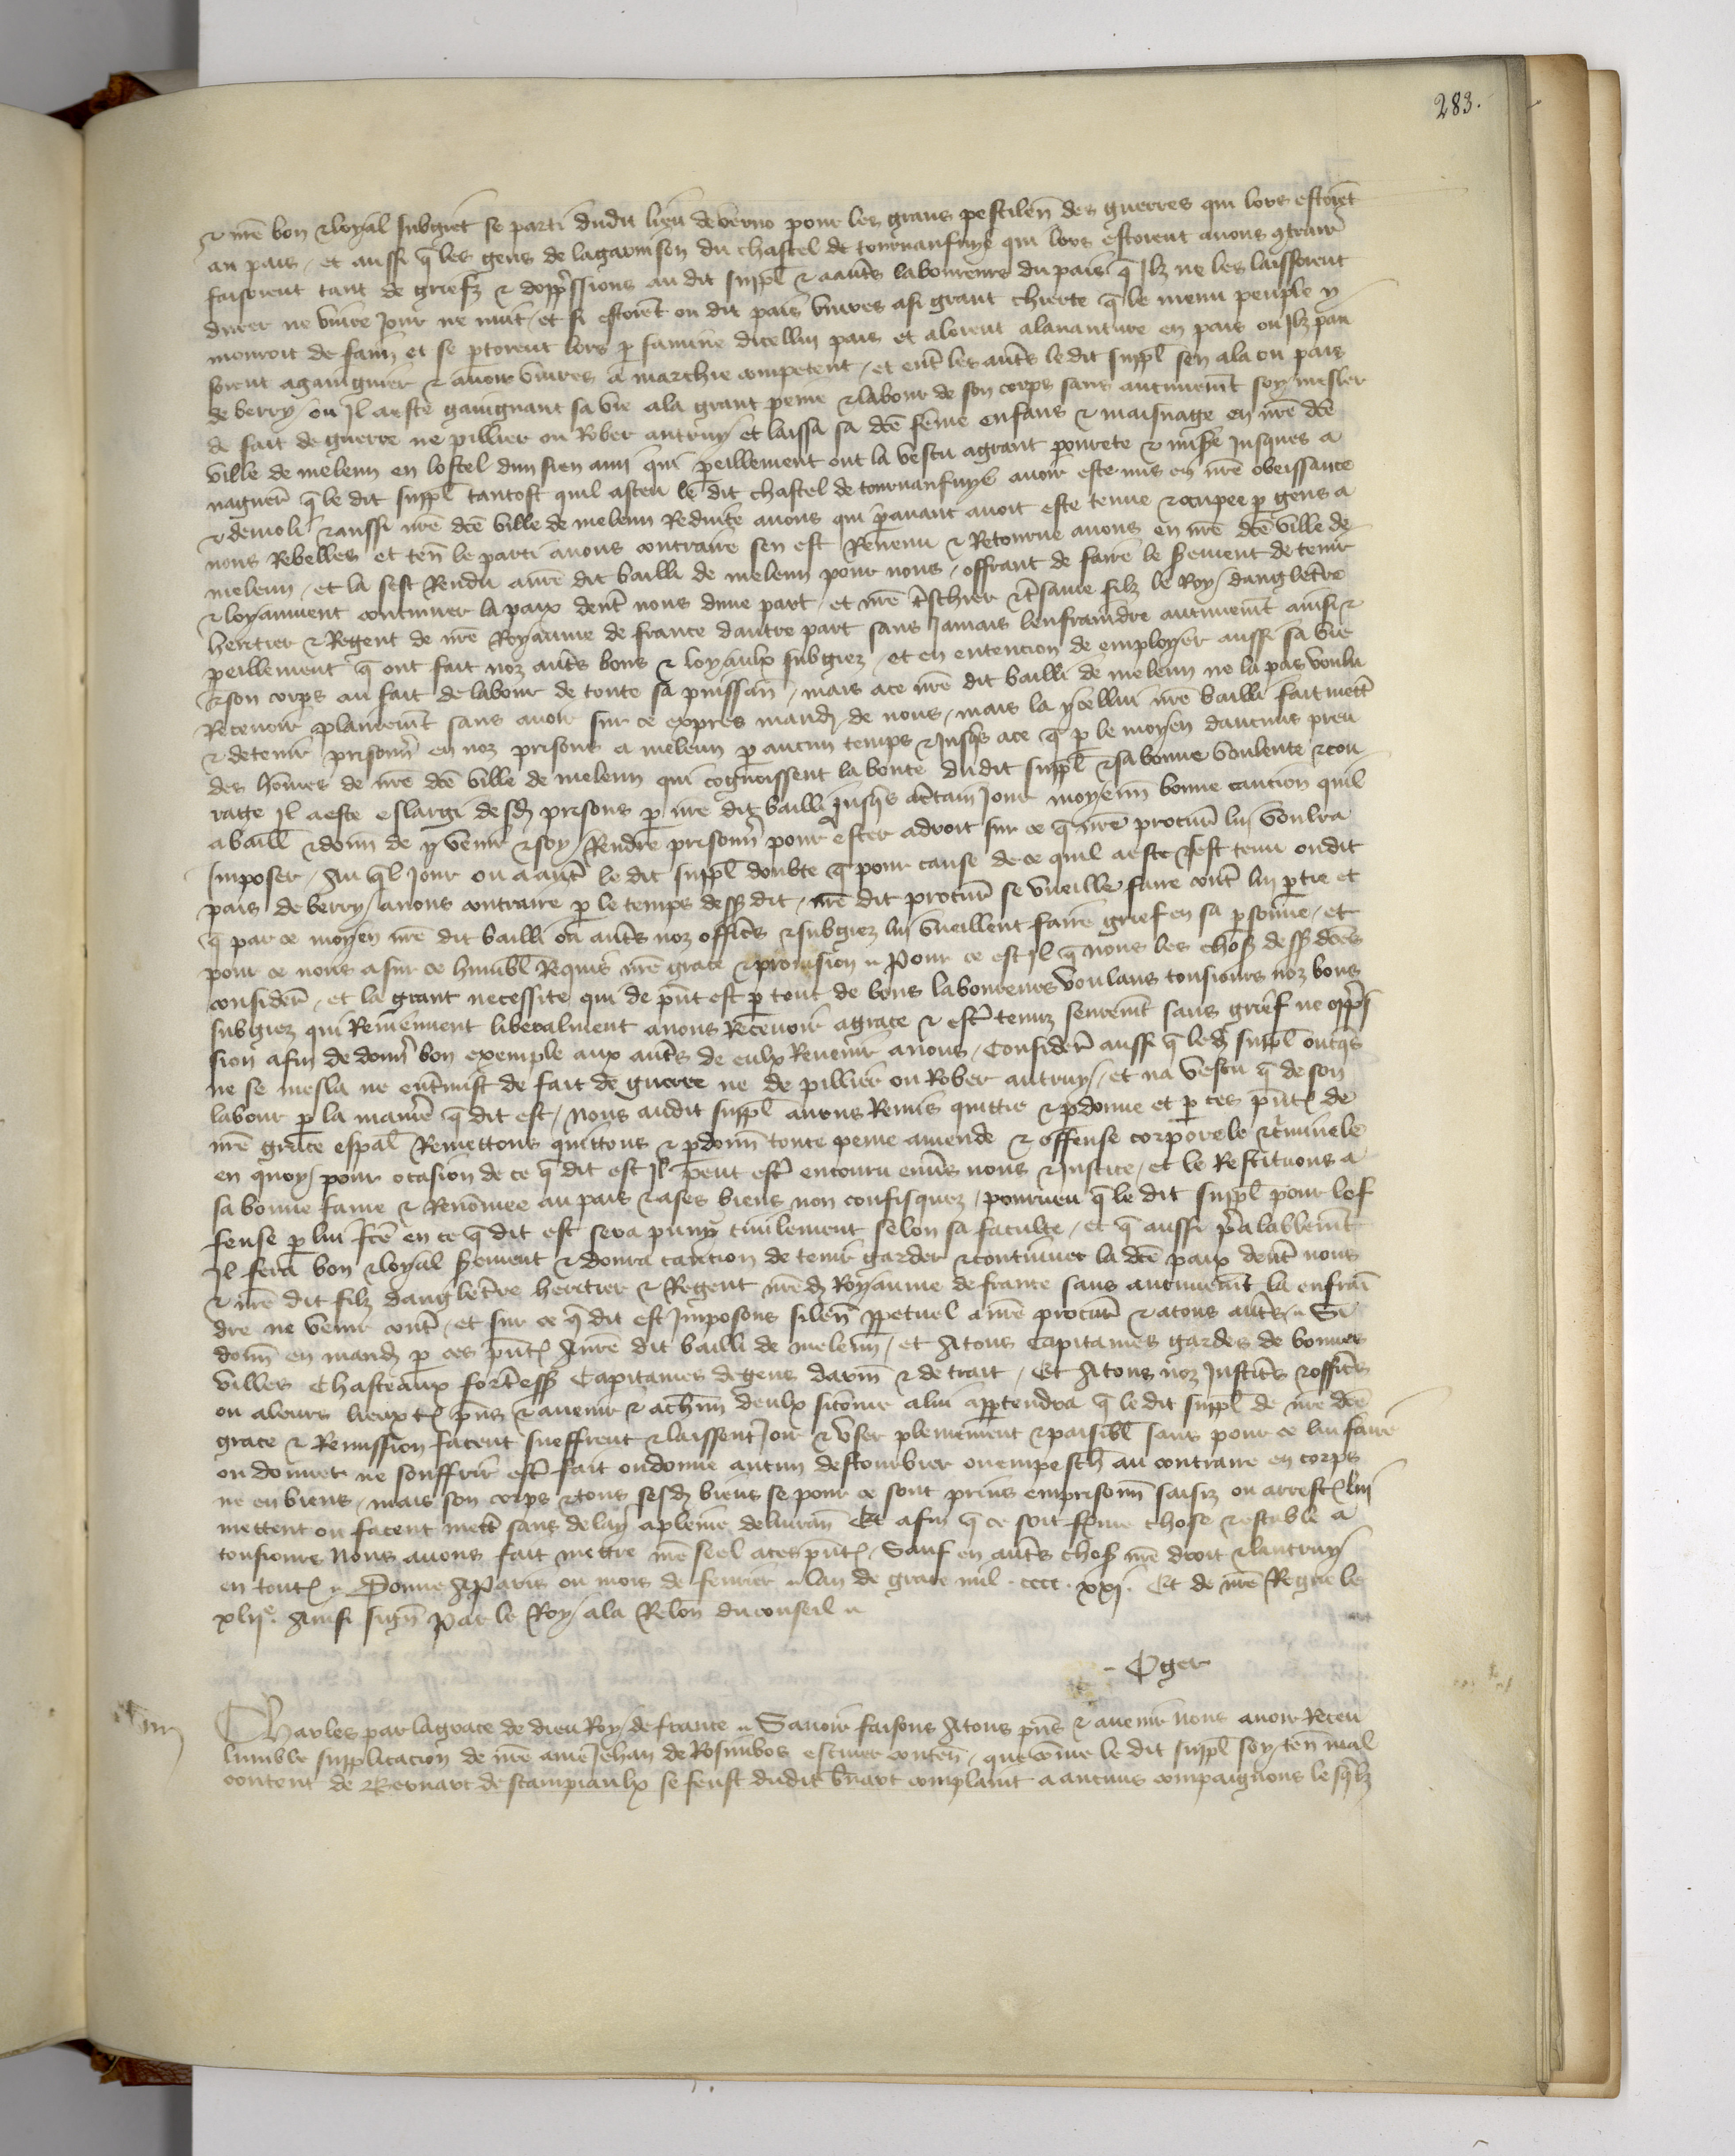 283.
⁊ nr̃e bon ⁊ loyal subgiet se parti dudit lieu de verno pour les grans pestilen̄ des guerres qui lors estoiēt
au pais / et aussi q̄ les gens de la garnison du chastel de tournanfuye qui lors estoient a nous ɔtrair̄
faisoient tant de griefz ⁊ dopp̄ssions au dit suppl̄ ⁊ a aut̄s laboureurs du pais q̄ Ilz ne les laissoient
durer ne viure Jour ne nuit / et si estoiēt ou dit pais viures a si grant chierte q̄ le menu peuple y
mouroit de faim et se p̱toient lors p̱ famine dicellui pais et aloient a lauanture en pais ou Ilz pan
soient a gaignier ⁊ auoir viures a marchie competent / et ent̄ les aut̄s le dit suppl̄ sen ala ou pais
de berry / ou Il a este gaignant sa vie a la grant peine ⁊ labour de son corps sans aucunemt̄ soy mesler
de fait de guerre ne pillier ou Rober autruy / et laissa sa dc̄e fēme enfans ⁊ maisnage en nr̄e dc̄e
ville de meleun en lostel dun sien ami qui pareillement ont la vescu a grant pourete ⁊ mis̄e Jusques a
naguer̄ q̄ le dit suppl̄ tantost quil a sceu le dit chastel de tournanfuye auoir este mis en nr̄e obeissance
⁊ demoli ⁊ aussi nr̄e dc̄e ville de meleun Reduite a nous qui p̱auant auoit este tenue ⁊ occupee p̱ gens a
nous Rebelles et ten̄ le parti a nous contraire sen est Reuenu ⁊ Retourne a nous en nr̄e dc̄e ville de
meleun / et la sest Rendu a nr̄e dit bailli de meleun pour nous / offrant de faire le s̄ement de tenir
⁊ loyaument continuer la paix dent̄ nous dune part / et nr̄e t̄schier ⁊ t̄same filz le Roy / dangleterre
heritier ⁊ Regent de nr̄e Royaume de france dautre part sans Jamais lenfraindre aucunemt̄ ainsi ⁊
pareillement q̄ ont fait noz aut̄s bons ⁊ loyaulx subgiez / et en entencion de employer aussi sa vie
⁊ son corps au fait de labour de toute sa puissan̄ / mais a ce nr̄e dit bailli de meleun ne la pas voulu
Receuoir plainemt̄ sans auoir sur ce expres mand̄ de nous / mais la ycellui nr̄e bailli fait mett̄
⁊ detenir prisonn̄ en noz prisons a meleun p̱ aucun temps ⁊ Jusq̄s a ce q̄ p̱ le moyen daucuns preu
des hōmes de nr̄e dc̄e ville de meleun qui cognoissent la bonte dudit suppl̄ ⁊ sa bonne voulente ⁊ cou
rage Il a este eslargi desd̄ prisons p̱ nr̄e dit bailli Jusq̄s a c̄tain Jour moyenn̄ bonne caucion quil
a baill̄ ⁊ donn̄ de y venir ⁊ soy / Rendre prisonn̄ pour ester a droit sur ce q̄ nr̄e procur̄ lui vouldra
Imposer / Au q̄l Jour ou a aut̄ le dit suppl̄ doubte q̄ pour cause de ce quil a este ⁊ sest tenu ou dit
pais de berry / a nous contraire p̱ le temps dess̄dit / nr̄e dit procur̄ se vueille faire cont̄ lui p̱tie et
q̄ par ce moyen nr̄e dit bailli ou aut̄s noz offic̄s ⁊ subgiez lui vueillent faire grief en sa p̱sonne / et
pour ce nous a sur ce humbl̄ Requis nr̄e grace ⁊ prouision / Pour ce est Il q̄ nous les chos̄ dess̄dc̄es
consider̄ / et la grant necessite qui de pn̄t est p̱ tout de bons laboureurs voulans tousiours noz bons
subgiez qui Reuiennent liberalment a nous Receuoir a grace ⁊ est̄ tenuz seuremt̄ sans grief ne opp̄s
sion afin de donn̄ bon exemple aux aut̄s de eulx Reuenir a nous / Consider̄ aussi q̄ led̄ suppl̄ oncq̄s
ne se mesla ne ent̄mist de fait de guerre ne de pillier ou Rober autruy / et na vescu q̄ de son
labour p̱ la manie͛ q̄ dit est / Nous audit suppl̄ auons Remis quittie ⁊ p̱donne et p̱ ces pn̄t̄ de
nr̄e grace esp̄al̄ Remettons quittons ⁊ p̱donn̄ toute peine amende ⁊ offense corporele ⁊ c̄minele
en quoy / pour ocasion de ce q̄ dit est Il peut est̄ encouru enu̇s nous ⁊ Justice / et le Restituons a
sa bonne fame ⁊ Renōmee au pais ⁊ a ses biens non confisquez / pourueu q̄ le dit suppl̄ pour lof
fense p̱ lui fc̄e en ce q̄ dit est sera puny ciuilement selon sa faculte / et q̄ aussi p̄alablemt̄
Il fera bon ⁊ loyal s̄ement ⁊ donra caucion de tenir garder ⁊ continuer la dc̄e paix dent̄ nous
⁊ nr̄e dit filz dangleterre heritier ⁊ Regent nr̄ed̄ Royaume de france sans aucunemt̄ la enfrai
dre ne venir cont̄ / et sur ce q̄ dit est Imposons silen̄ p̱petuel a nr̄e procur̄ ⁊ a tous aut̄s / Si
donn̄ en mand̄ p̱ ces pn̄t̄ A nr̄e dit bailli de meleun / et A tous Capitaines gardes de bonnes
villes Chasteaux fort̄ess̄ Capitaines de gens darm̄ ⁊ de trait / Et A tous noz Justic̄s ⁊ offic̄s
ou a leurs lieuxt̄ pn̄s ⁊ auenir ⁊ a ch̄un deulx si cōme a lui app̱tendra q̄ le dit suppl̄ de nr̄e dc̄e
grace ⁊ Remission facent sueffrent ⁊ laissent Joir ⁊ vser plainement ⁊ paisibl̄ sans pour ce lui faire
ou donner ne souffrir est̄ fait ou donne aucun destourbier ou empesch̄ au contraire en corps
ne en biens / mais son corps ⁊ tous sesd̄ biens se pour ce sont prins emprisonn̄ saisiz ou arrest̄ lui
mettent ou facent mett̄ sans delay a pleine deliuran̄ Et afin q̄ ce soit ferme chose ⁊ estable a
tousiours Nous auons fait mettre nr̄e seel a ces pn̄t̄ / Sauf en aut̄s chos̄ nr̄e droit ⁊ lautruy
en tout̄ / Donne A Paris ou mois de feurier lan de grace mil . cccc . xxj . Et de nr̄e Regne le
xlij͛ᵉ . Ainsi sign̄ Par le Roy / a la Relōn du conseil
Oger
Charles par la grace de dieu Roy / de france Sauoir faisons A tous pn̄s ⁊ auenir Nous auoir Receu
lumble supplicacion de nr̄e ame Jehan de Rosimbos escuier conten̄ / que cōme le dit suppl̄ soy / ten̄ mal
content de Bernart destampiaulx se feust dudit bn̄art complaint a aucuns compaignons lesq̄lz